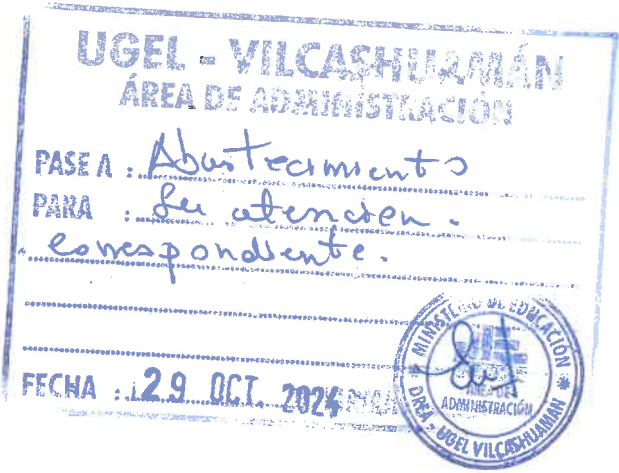 UGEL - VILCASHUAMÁN
ÁREA DE ADMINISTRACIÓN
PASE A : Abastecimiento
PARA : Su atención.
correspondiente.
FECHA : 29 OCT. 2024
MINISTERIO DE EDUCACIÓN
ÁREA DE
ADMINISTRACIÓN
DREA - UGEL VILCASHUAMAN